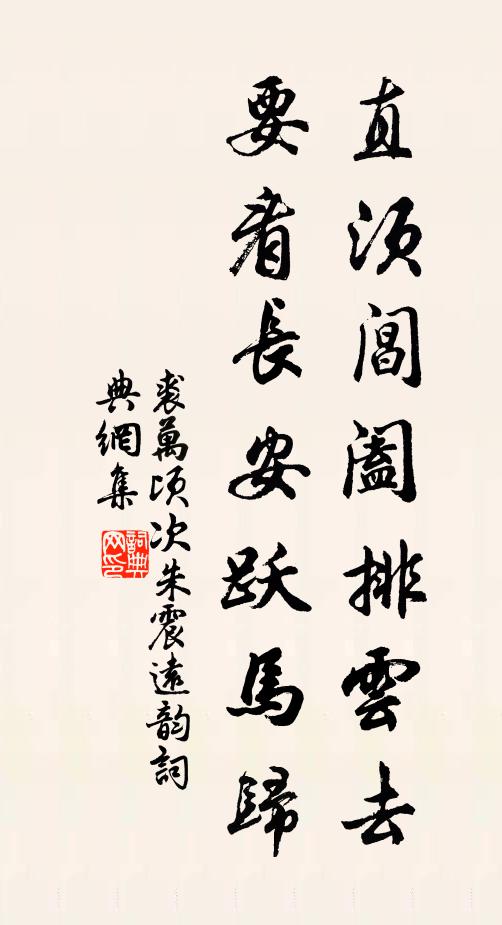 直須閶闔排雲去
要看長安跃馬歸
裘萬頃次朱震遠韵詞
典網集
詞典
网印